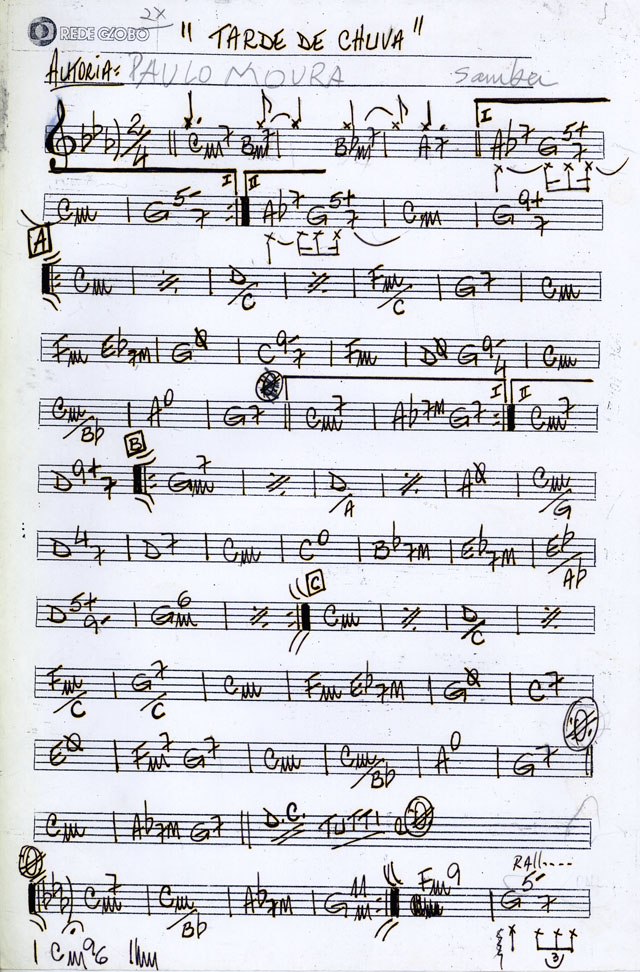 REDE GLOBO 2X " TARDE DE CHUVA "
AUTORIA: PAULO MOURA Samba
2/4 Cm7 Bm7 Bbm7 A7 I Ab7 G5+7
Cm G5-7 I II Ab7 G5+7 Cm G9+7
A
Cm D/C Fm/C G7 Cm
Fm Eb7M GØ C9-7 Fm DØ G9-4 Cm
Cm/Bb Aº G7 Cm7 Ab7M G7 I II Cm7
B
D9+7 Gm7 D/A AØ Cm/G
D47 D7 Cm Cº Bb7M Eb7M Eb/Ab
C
D5+9- Gm6 Cm D/C
Fm/C G7/C Cm Fm Eb7M GØ C7
EØ Fm7 G7 Cm Cm/Bb Aº G7
Cm Ab7M G7 D.C. TUTTI
RALL----
Cm7 Cm/Bb Ab7M G11 Fm9 G5-7
3
Cm9/6